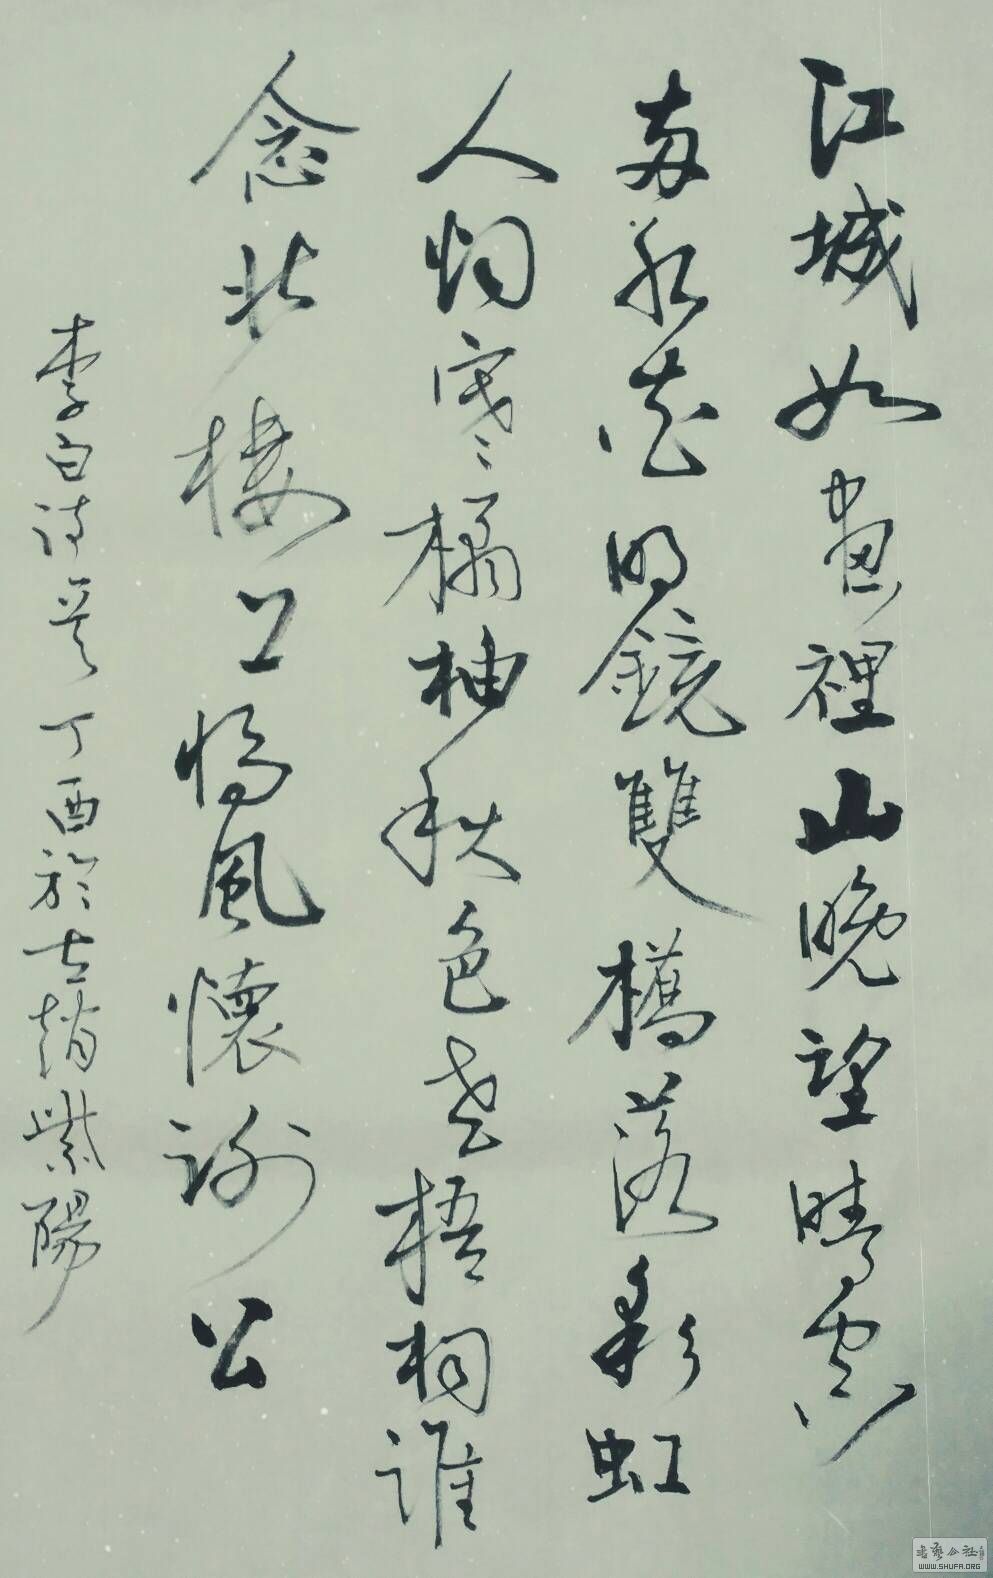 江城如畫裡山晚望晴空
兩水夾明鏡雙橋落彩虹
人烟寒橘柚秋色老梧桐誰
念北樓上臨風懷謝公
李白詩 丁酉於古趙紫陽
書藝公社
WWW.SHUFA.ORG